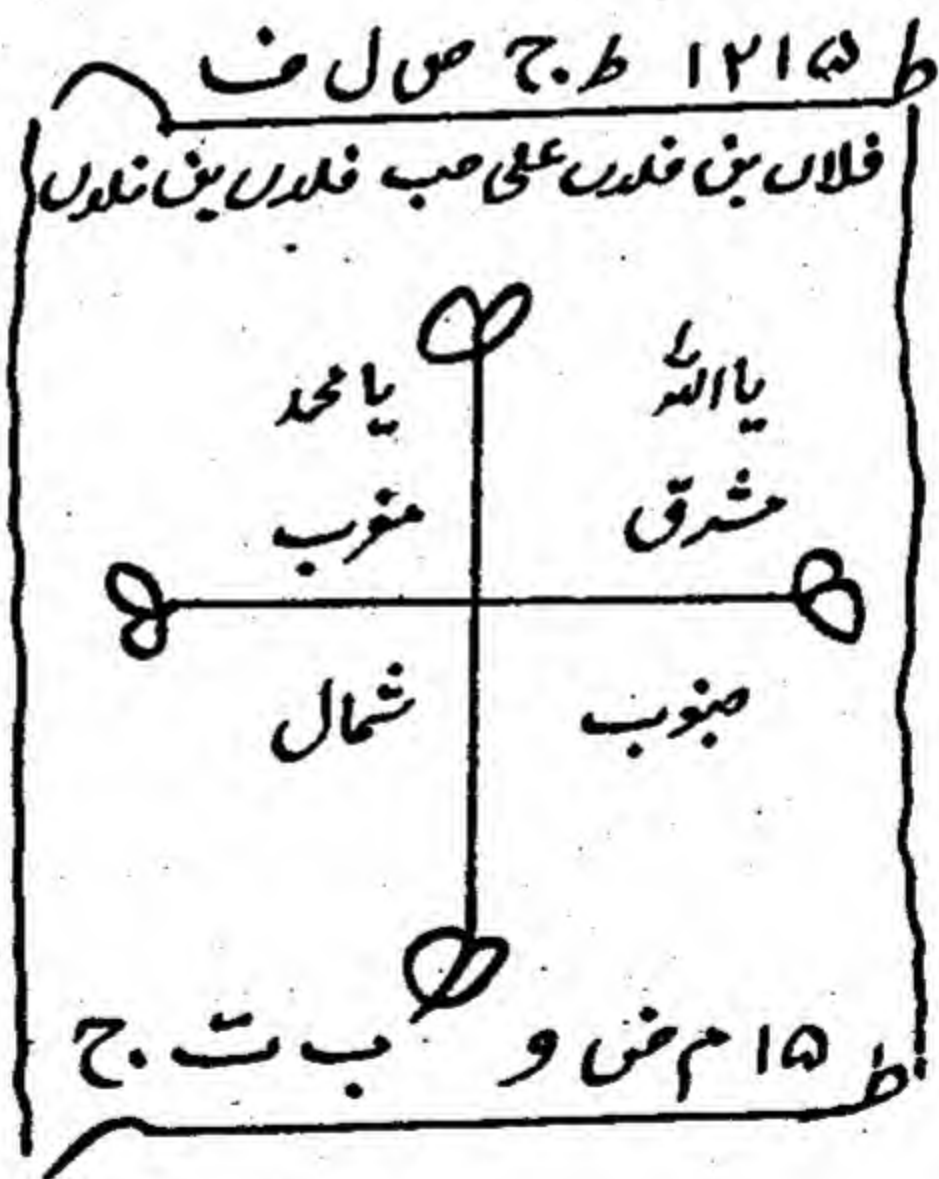 ط ۱۲۱۵ ط ج ص ل ف
فلاں بن فلاں علی حب فلاں بن فلاں
یا اللہ یا محمد
مشرق مغرب
جنوب شمال
ط ۱۵ م ض و ب ت ج